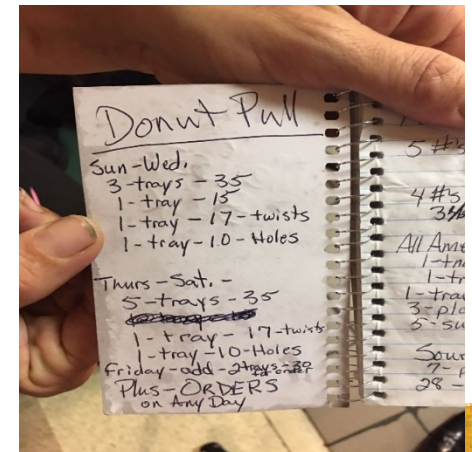 Donut Pull
Sun-Wed.
3-trays-35
1-tray-15
1-tray-17-twists
1-tray-10-Holes
Thurs-Sat.-
5-trays-35
1-tray-17-twists
1-tray-10-Holes
Friday-add-2trays-30
Plus-ORDERS
on Any Day
5 #
4 #5
All Ame
1-tra
1-tr
1-tray
5-su
Sour
7-p
28-